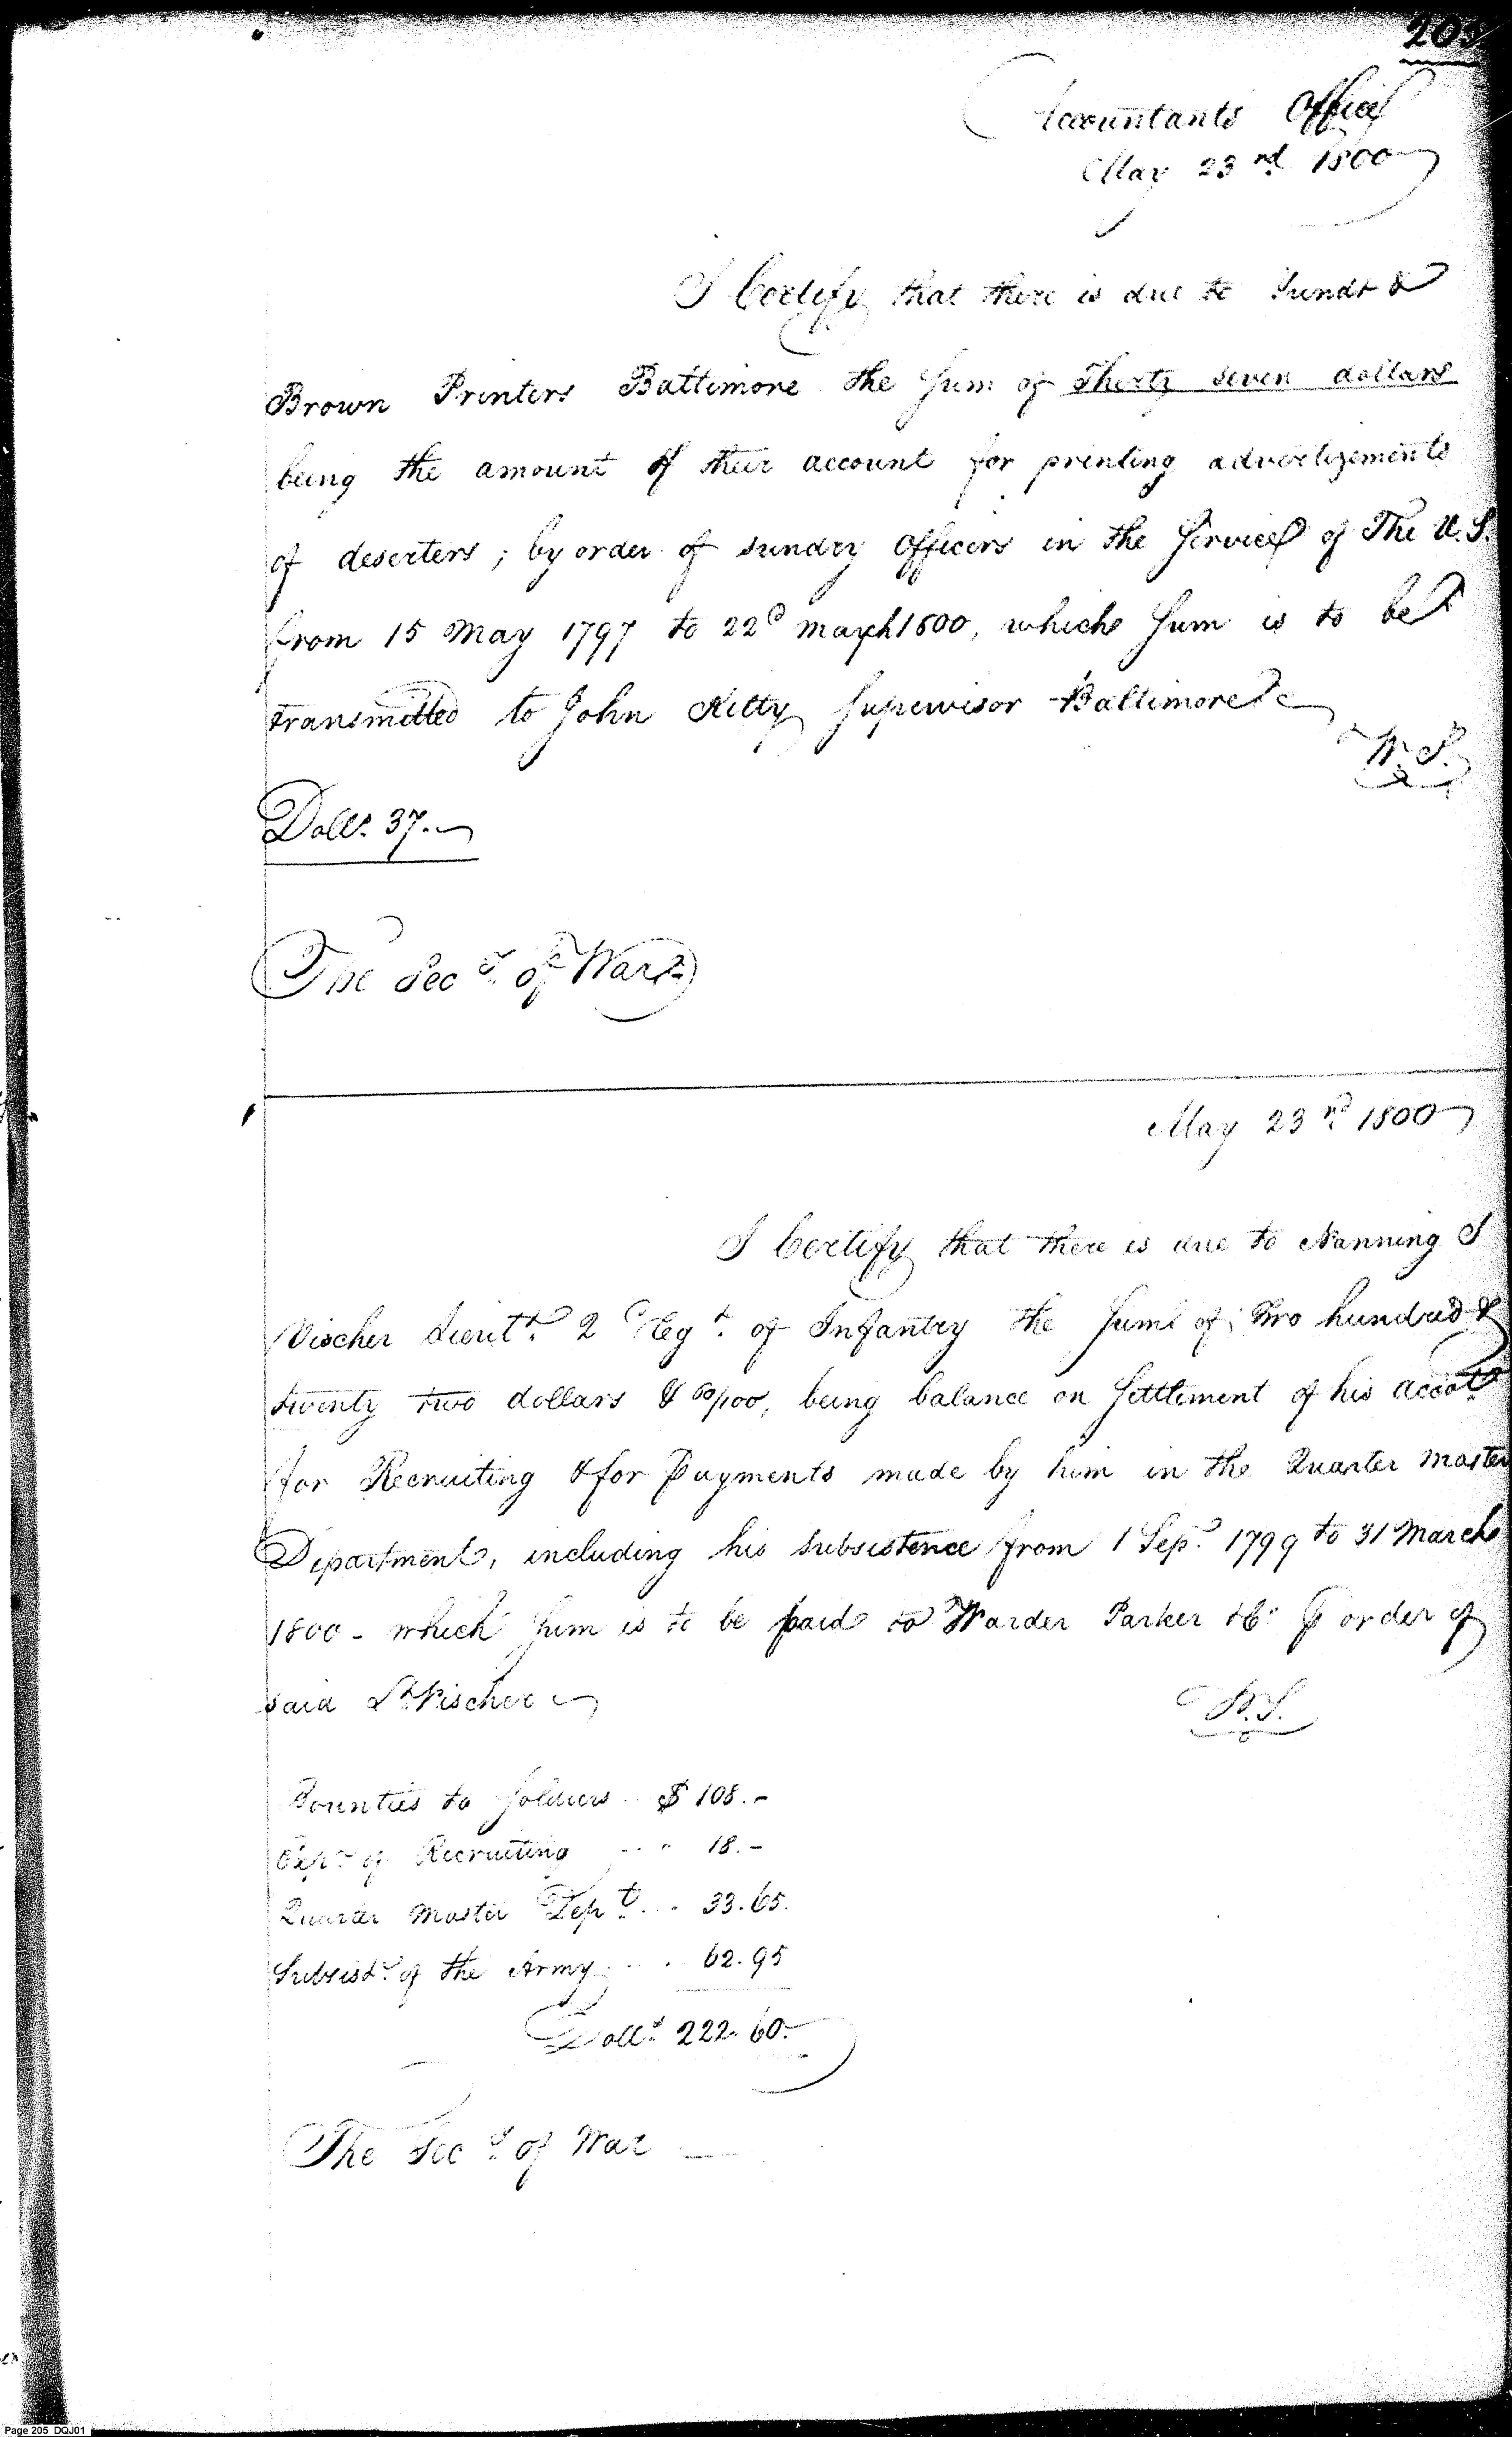 205
Accountants Office
May 23rd 1800
I Certify that there is due to Yundt &
Brown Printers Baltimore the Sum of Thirty seven dollars
being the amount of their account for printing advertizements
of deserters; by order of sundry Officers in the Service of The U.S.
from 15 May 1797 to 22d March 1800, which Sum is to be
transmitted to John Kilty Supervisor Baltimore
W. S.
Dolls. 37.
The Secy. of War
May 23rd 1800
I Certify that there is due to Nanning I
Vischer Lieutt. 2 Regt. of Infantry the Sum of Two hundred &
twenty two dollars & 60/100, being balance on Settlement of his Accot.
for Recruiting & for Payments made by him in the Quarter Master
Department, including his subsistence from 1 Sepr. 1799 to 31 March
1800 - which Sum is to be paid to Warder Parker & Co. ⅌ order of
said Lt. Vischer
W. S.
Bounties to Soldiers $ 108.-
Exps. of Recruiting 18.-
Quarter Master Dept. 33.65.
Subsistc. of the Army 62.95
Dolls. 222.60.
The Secy. of War
Page 205 DQJ01